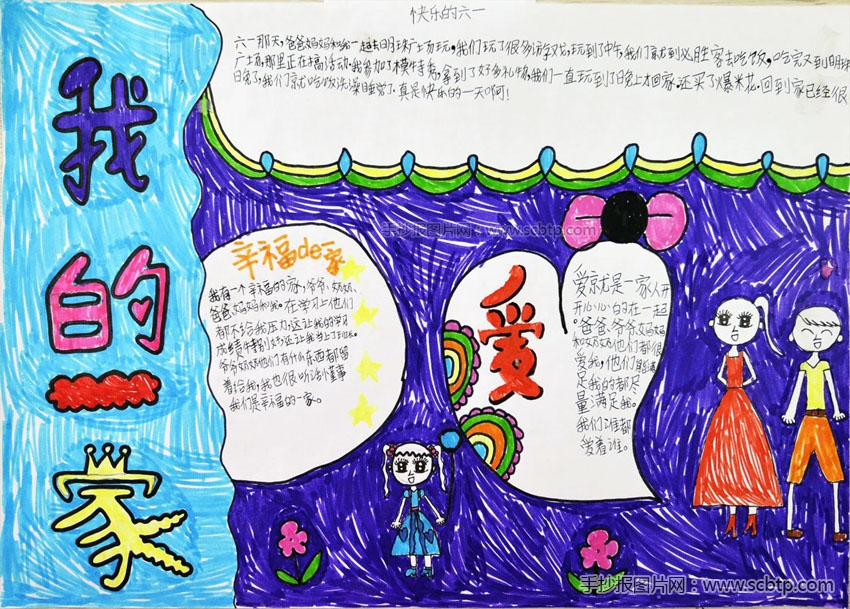 快乐的六一
六一那天,爸爸妈妈和我一起去明珠广场玩,我们玩了很多游戏,玩到了中午,我们就到必胜客去吃饭,吃完又到明珠
广场,那里正在搞活动,我参加了模特秀,拿到了好多礼物,我们一直玩到了晚上才回家.还买了爆米花.回到家已经很
晚了,我们就吃饭洗澡睡觉了.真是快乐的一天啊!
我
的
一
家
辛福de家
我有一个幸福的家,爷爷,奶奶,
爸爸,妈妈和我。在学习上他们
都不给我压力,这让我的学习
成绩特别好,还让我当上了班长。
爷爷奶奶他们有什么东西都留
着给我,我也很听话懂事
我们是幸福的一家。
爱
爱就是一家人开
开心心的在一起
。爸爸、爷爷、妈妈
和奶奶他们都很
爱我,他们能满
足我的都尽
量满足我。
我们谁都
爱着谁。
手抄报图片网:www.scbtp.com
手抄报图片网:www.scbtp.com